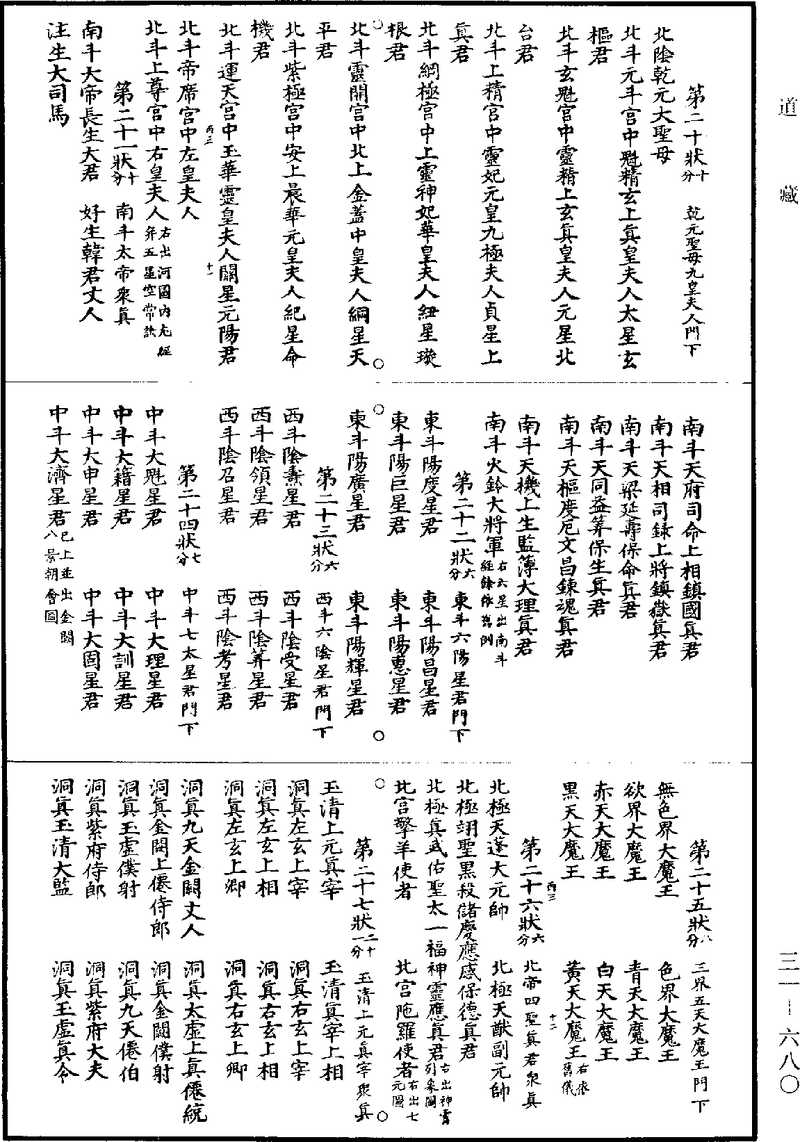 道藏
三一—六八〇
第二十狀十分　乾元聖母九皇夫人門下
北陰乾元大聖母
北斗元斗宮中魁精玄上眞皇夫人太星玄
樞君
北斗玄魁宮中靈精上玄眞皇夫人元星北
台君
北斗上精宮中靈妃元皇九極夫人貞星上
眞君
北斗綱極宮中上靈神妃華皇夫人紐星璇
根君
北斗靈開宮中北上金蓋中皇夫人綱星天
平君
北斗紫極宮中安上晨華元皇夫人紀星命
機君
北斗運天宮中玉華靈皇夫人關星元陽君
丙三　十一
北斗帝席宮中左皇夫人
北斗上尊宮中右皇夫人右出河圖内元經年五星空常訣
第二十一狀十分　南斗太帝衆眞
南斗大帝長生大君　好生韓君丈人
注生大司馬
南斗天府司命上相鎮國眞君
南斗天相司錄上將鎮嶽眞君
南斗天梁延壽保命眞君
南斗天同益筭保生眞君
南斗天樞度厄文昌錬魂眞君
南斗天機上生監簿大理眞君
南斗火鈴大將軍右六星出南斗經餘依舊例
第二十二狀六分　東斗六陽星君門下
東斗陽度星君　東斗陽昌星君
東斗陽巨星君　東斗陽惠星君
東斗陽廣星君　東斗陽輝星君
第二十三狀六分　西斗六陰星君門下
西斗陰燾星君　西斗陰受星君
西斗陰領星君　西斗陰筭星君
西斗陰召星君　西斗陰考星君
第二十四狀七分　中斗七太星君門下
中斗大魁星君　中斗大理星君
中斗大籍星君　中斗大訓星君
中斗大申星君　中斗大岡星君
中斗大濟星君已上並出金闕八景朝會圖
第二十五狀八分　三界五天大魔王門下
無色界大魔王　色界大魔王
欲界大魔王　青天大魔王
赤天大魔王　白天大魔王
黑天大魔王　黃天大魔王右依舊儀
丙三　十二
第二十六狀六分　北帝四聖眞君衆眞
北極天蓬大元帥　北極天猷副元帥
北極翊聖黑殺儲慶應感保德眞君
北極眞武佑聖太一福神靈應眞君右出神霄列象圖
北宮擎羊使者　北宮陀羅使者右出七元圖
第二十七狀二十一分　玉清上元眞宰衆眞
玉清上元眞宰　玉清眞宰上相
洞眞左玄上宰　洞眞右玄上宰
洞眞左玄上相　洞眞右玄上相
洞眞左玄上卿　洞眞右玄上卿
洞眞九天金闕丈人　洞眞太虛上眞僊統
洞眞金闕上僊侍郎　洞眞金闕僕射
洞眞玉虛僕射　洞眞九天僊伯
洞眞紫府侍郎　洞眞紫府大夫
洞眞玉清大監　洞眞玉虛眞令